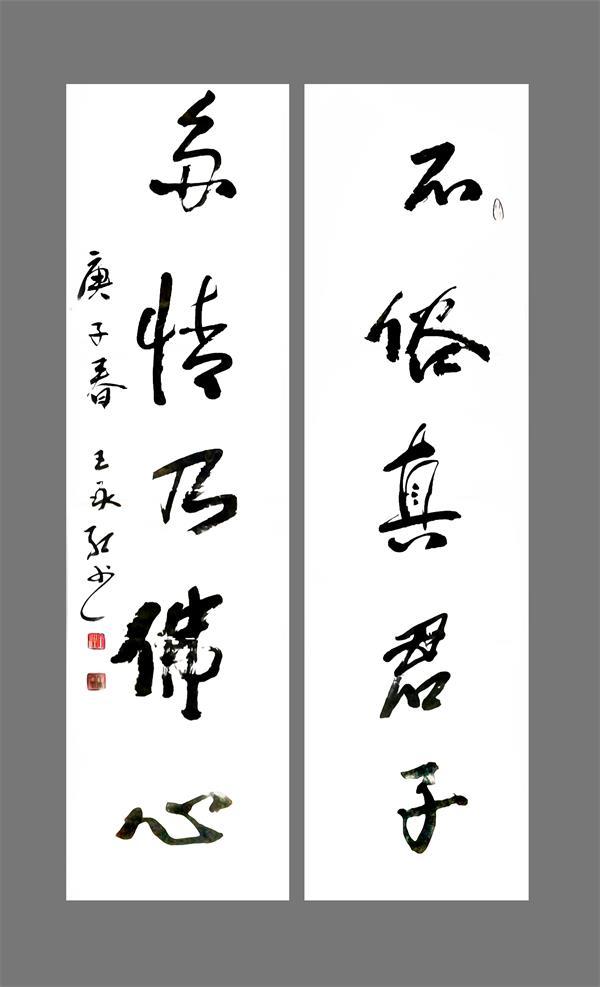 不俗真君子
多情乃佛心
庚子春 王永